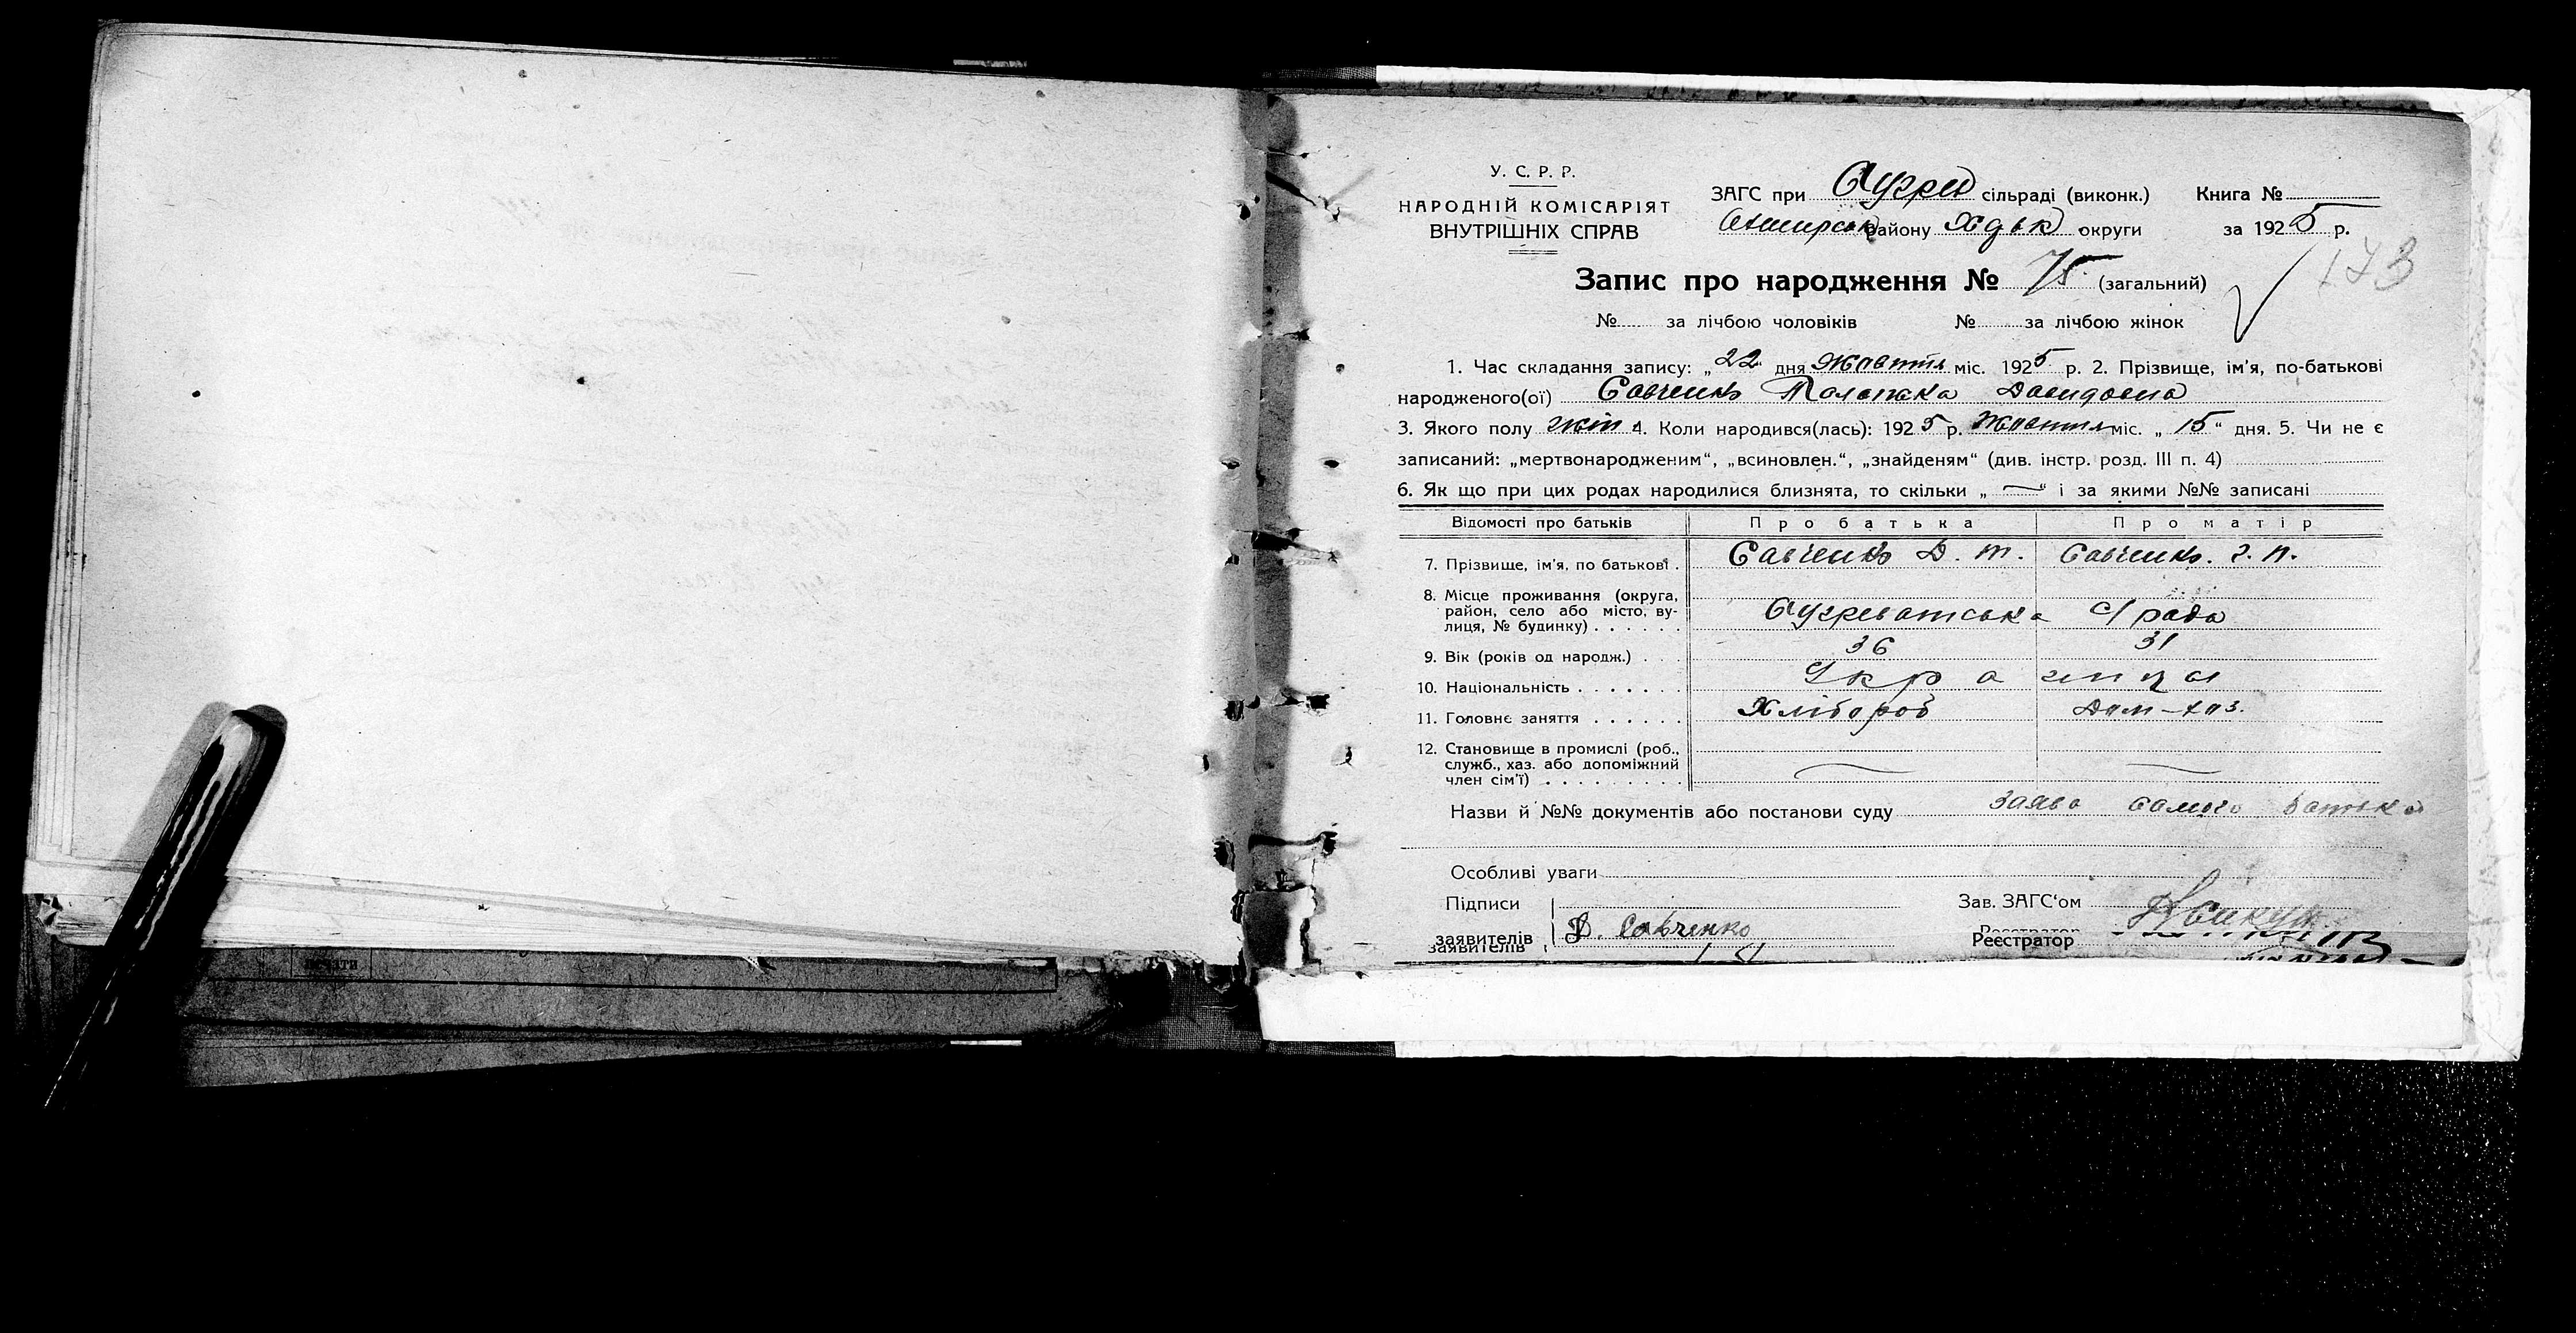 У. С. Р. Р.
НАРОДНІЙ КОМІСАРІЯТ
ВНУТРІШНІХ СПРАВ
ЗАГС при сільраді (виконк.) Книга №
району округи за 1925 р.
173
Запис про народження № 75 (загальний)
№ за лічбою чоловіків № за лічбою жінок
1. Час складання запису: „22 дня Жовтня міс. 1925 р. 2. Прізвище, ім'я, по-батькові
народженого(ої) Савченко Давидовна
3. Якого полу жін 4. Коли народився(лась): 1925 р. Жовтня міс. „15“ дня. 5. Чи не є
записаний: „мертвонародженим“, „всиновлен.“, „знайденям“ (див. інстр. розд. III п. 4)
6. Як що при цих родах народилися близнята, то скільки „—“ і за якими №№ записані
Відомості про батьків Про батька Про матір
7. Прізвище, ім'я, по батькові . Савченко Д. Т. Савченко. Г. П.
8. Місце проживання (округа,
район, село або місто, ву-
лиця, № будинку) . . . . . . с/рада
9. Вік (років од народж.) . . . 36 31
10. Національність . . . . . . . Українці
11. Головне заняття . . . . . . Хлібороб Дом-хаз.
12. Становище в промислі (роб.,
служб., хаз. або допоміжний
член сім'ї) . . . . . . . . . — —
Назви й №№ документів або постанови суду заява самого батька
Особливі уваги
Підписи Зав. ЗАГС'ом
заявителів Д. Савченко Реєстратор
заявителів